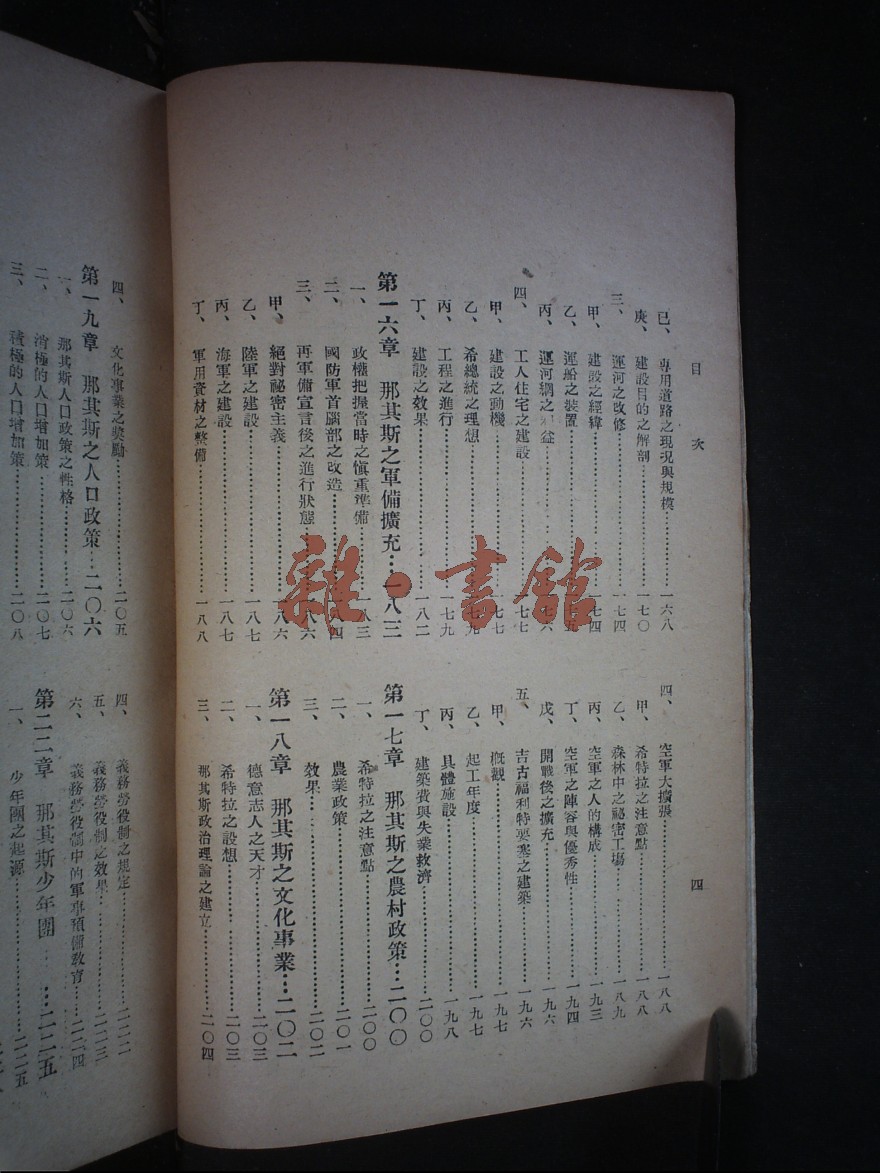 目次
四
己、專用道路之現況與規模……一六八
庚、建設目的之解剖……一七〇
三、運河之改修……一七四
甲、建設之經緯……一七四
乙、運船之裝置……
丙、運河網之 益……七六
四、工人住宅之建設……一七七
甲、建設之動機……一七七
乙、希總統之理想……一七九
丙、工程之進行……一七九
丁、建設之效果……一八二
第一六章 那其斯之軍備擴充…一八三
一、政權把握當時之慎重準備……一八三
二、國防軍首腦部之改造……一八四
三、再軍備宣言後之進行狀態……一八六
甲、絕對祕密主義……一八六
乙、陸軍之建設……一八七
丙、海軍之建設……一八七
丁、軍用資材之整備……一八八
四、空軍大擴張……一八八
甲、希特拉之注意點……一八八
乙、森林中之祕密工場……一八九
丙、空軍之人的構成……一九三
丁、空軍之陣容與優秀性……一九四
戊、開戰後之擴充……一九六
五、吉古福利特要塞之建築……一九六
甲、概觀……一九七
乙、起工年度……一九七
丙、具體施設……一九八
丁、建築費與失業救濟……二〇〇
第一七章 那其斯之農村政策…二〇〇
一、希特拉之注意點……二〇〇
二、農業政策……二〇一
三、效果……二〇二
第一八章 那其斯之文化事業…二〇二
一、德意志人之天才……二〇三
二、希特拉之設想……二〇三
三、那其斯政治理論之建立……二〇四
四、文化事業之獎勵……二〇五
第一九章 那其斯之人口政策…二〇六
一、那其斯人口政策之性格……二〇六
二、消極的人口增加策……二〇七
三、積極的人口增加策……二〇八
四、義務勞役制之規定……二二二
五、義務勞役制之效果……二二三
六、義務勞役制中的軍事預備教育……二二四
第二二章 那其斯少年團……二二五
一、少年團之起源……二二五
雜·書館